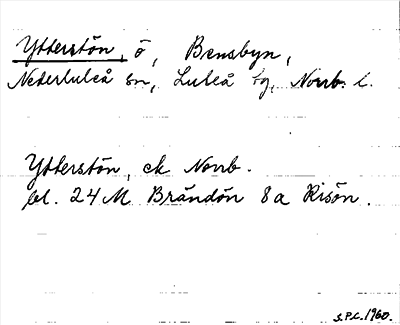 Ytterstön, ö, Bensbyn,
Nederluleå sn, Luleå tg, Norrb. l.
Ytterstön, ek Norrb.
bl. 24 M Brändön 8a Risön.
S.P.L. 1960.